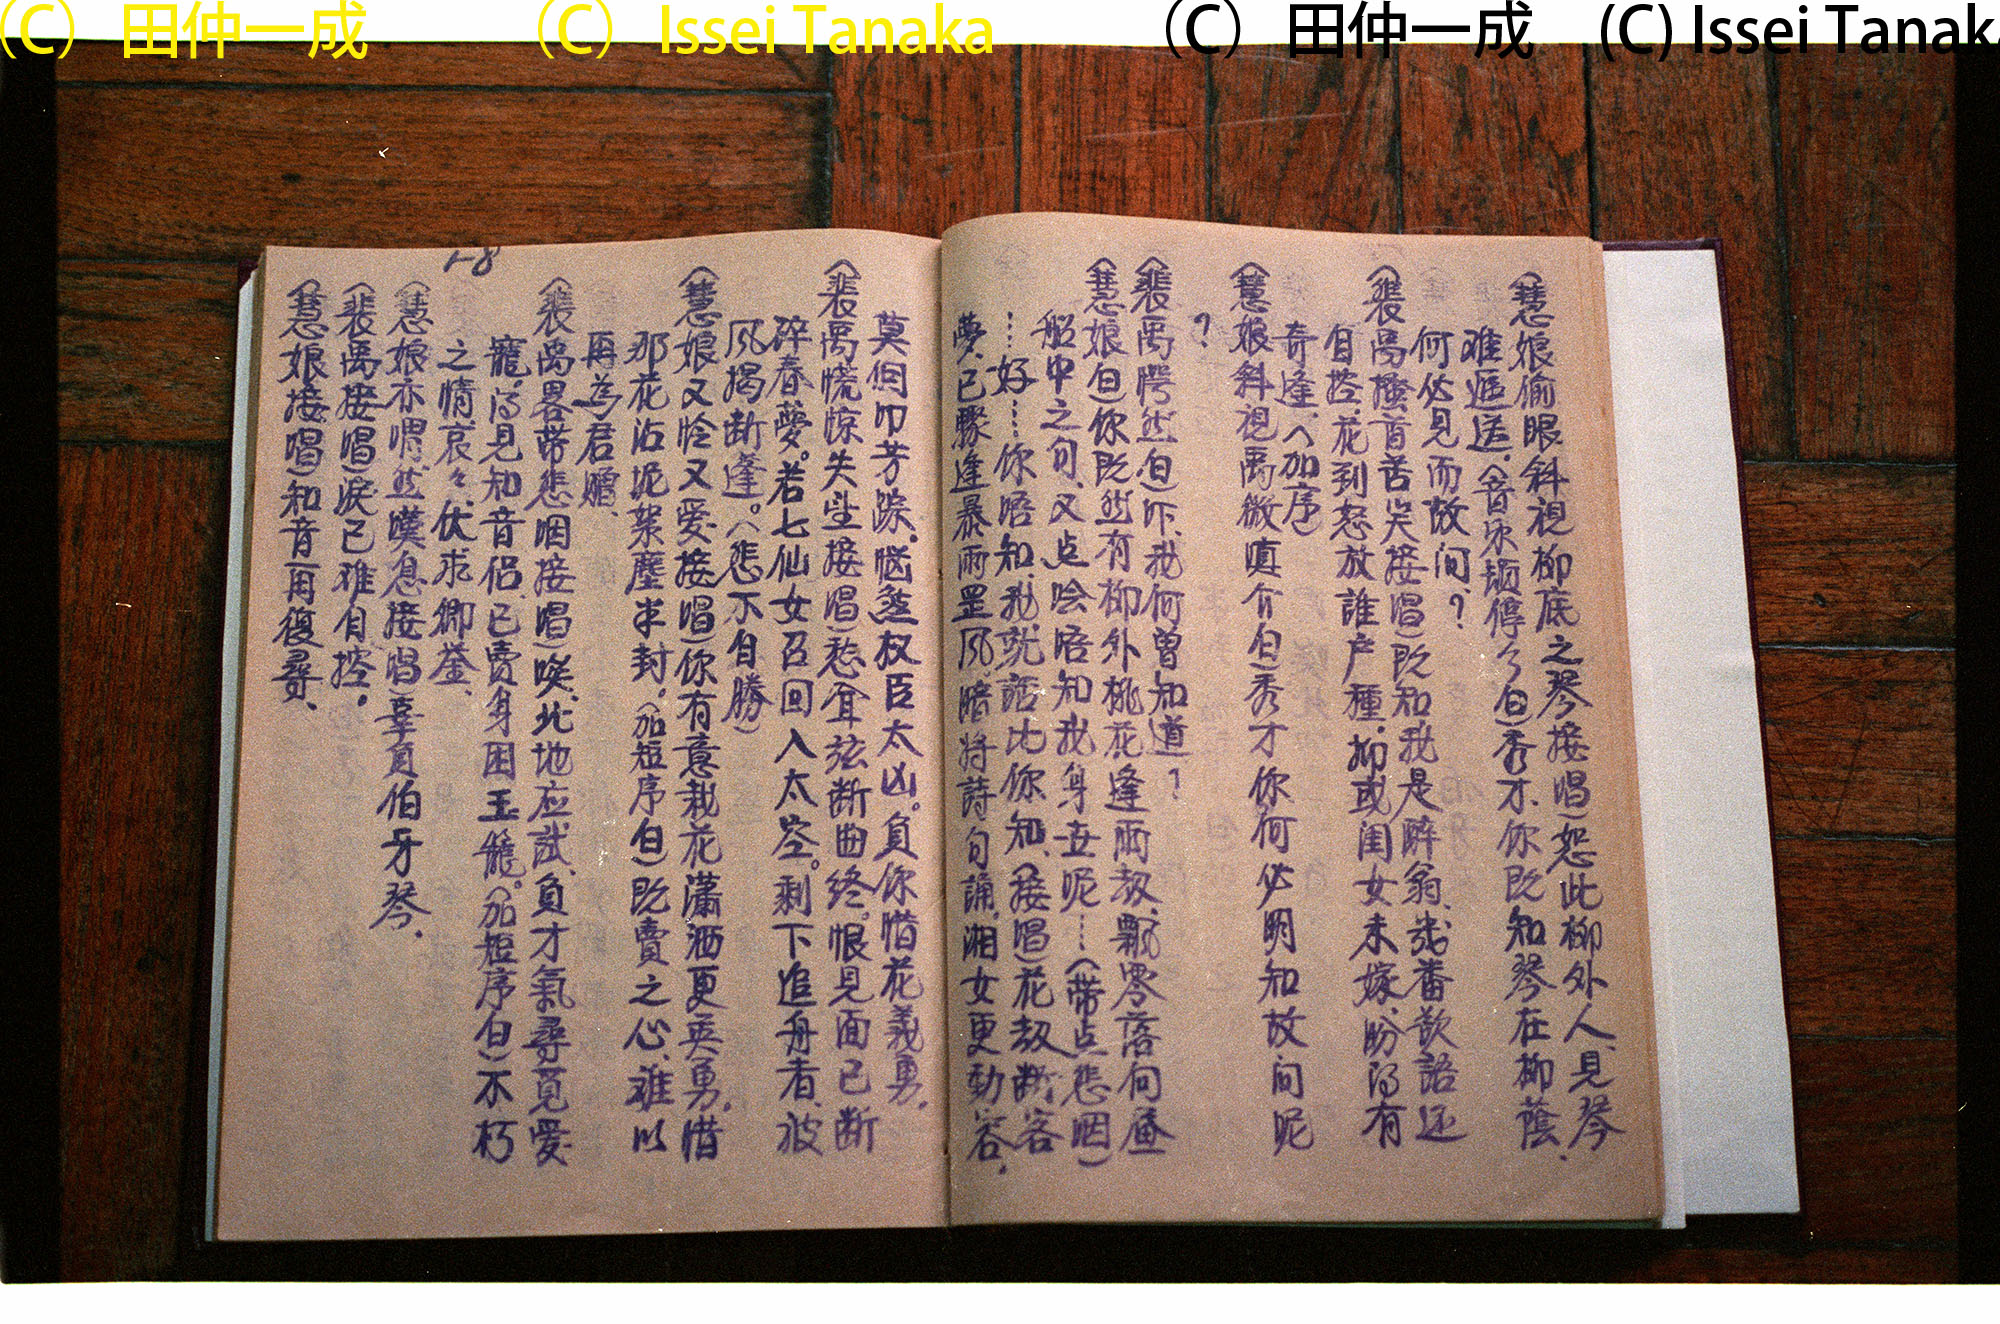 (C) 田仲一成 (C) Issei Tanaka (C) 田仲一成 (C) Issei Tanak
〈慧娘偷眼斜視柳底之琴接唱)怨此柳外人、見琴
难遞送。〈音乐頓停介白)秀才、你既知琴在柳蔭、
何必見而故问、?
〈裴禹搔首苦笑接唱)既知我是醉翁、幾番歡語还
自控、花到怒放誰户種、抑或闺女未嫁、盼得有
奇逢、〈加序
〈慧娘斜視禹微嗔介白)秀才你何必明知故问呢
?
〈裴禹愕然白)吓、我何曾知道?
〈慧娘白)你既然有柳外桃花逢雨劫、飄零落向畫
船中之句、又点唅唔知我身世呢…〈带点悲咽)
…好……你唔知、我就話比你知、〈接唱)花劫断客
夢、已驟逢暴雨罡风、暗将詩句誦、湘女更動容、
莫向叩芳踪、惱煞权臣太凶。負你惜花義勇、
〈裴禹慌惊失望接唱)愁宜弦断曲终。恨見面已断
碎春夢。若七仙女召回入太空。剩下追舟者、被
风揭断蓬。〈悲不自勝)
〈慧娘又怜又爱接唱)你有意栽花瀟洒更英勇、惜
那花沾坭絮塵半封。〈加短序白)既賣之心、难以
再為君贈、
〈裴禹畧带悲咽接唱)唉、北地应試、負才氣尋覓爱
寵、得見知音侣、已賣身困玉籠。〈加短序白)不朽
之情、哀々、伏求卿鉴、
1-8
〈慧娘亦喟然嘆息接唱)辜負伯牙琴、
〈裴禹接唱)淚已难自控。
〈慧娘接唱)知音再復尋、